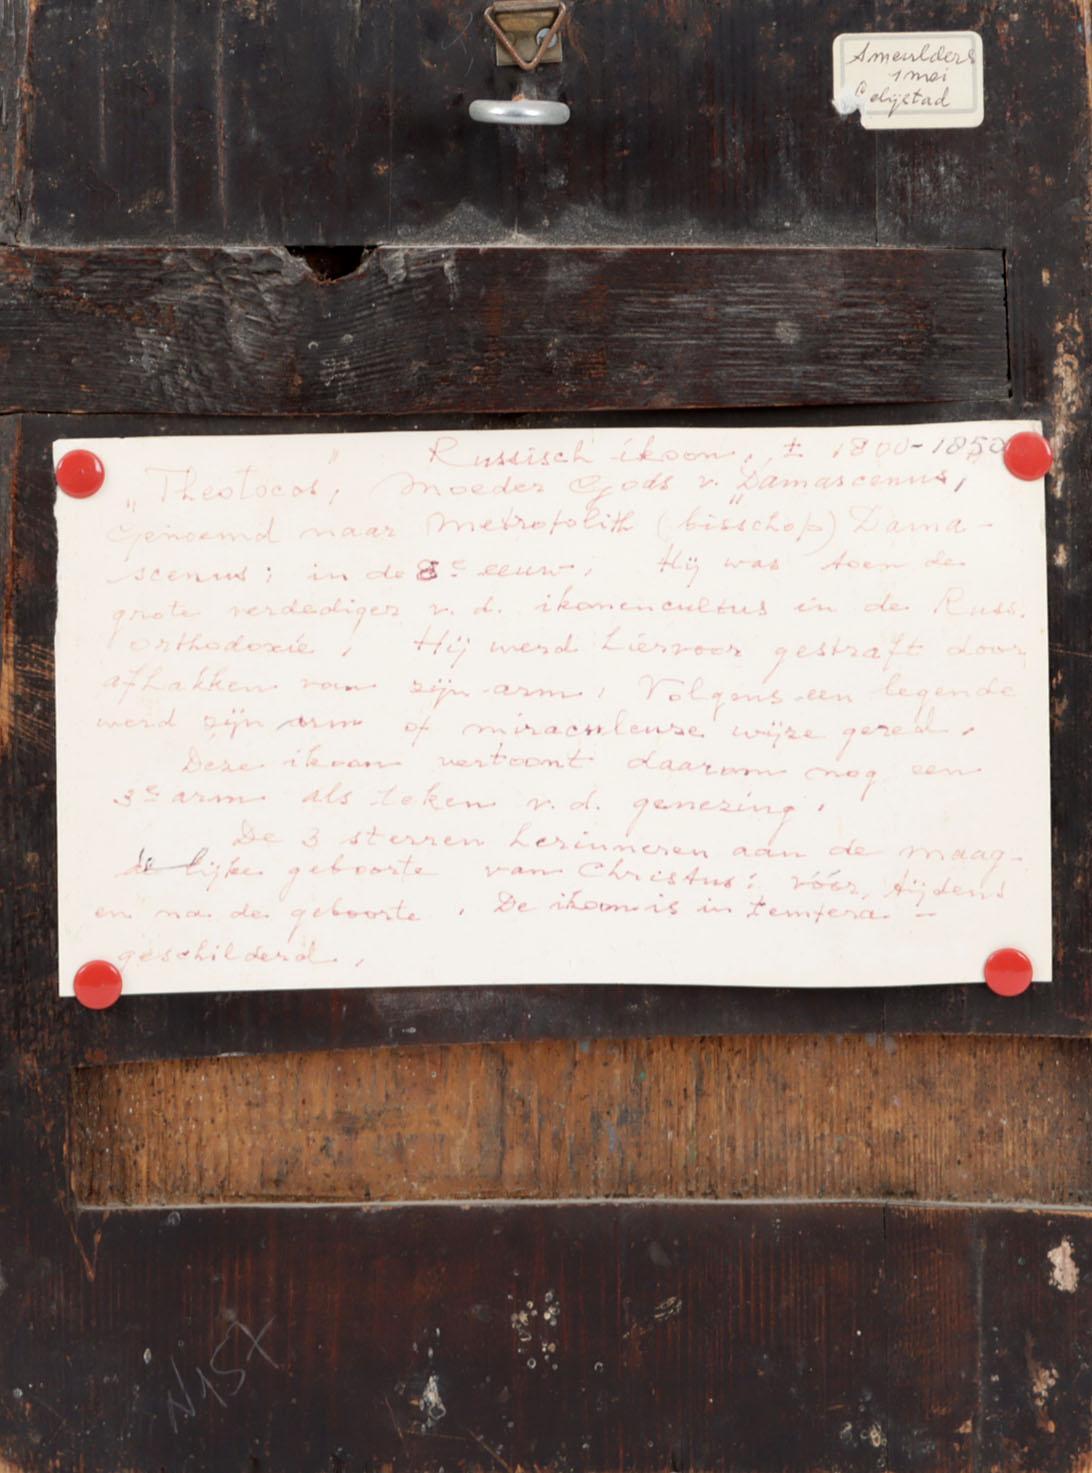 Smeulders
1 mei
Lelijstad
Russisch ikoon, ± 1800-1850
"Theotocos", Moeder Gods v. "Damascenus",
Genoemd naar Metropolith (bisschop) Dama-
scenus; in de 8e eeuw, Hij was toen de
grote verdediger v. d. ikonencultus in de Russ.
orthodoxie, Hij werd hiervoor gestraft door
afhakken van zijn arm, Volgens een legende
werd zijn arm op miraculeuze wijze gered.
Deze ikoon vertoont daarom nog een
3e arm als teken v. d. genezing.
De 3 sterren herinneren aan de maag-
de lijke geboorte van Christus: vóór, tijdens
en na de geboorte. De ikoon is in tempera -
geschilderd.